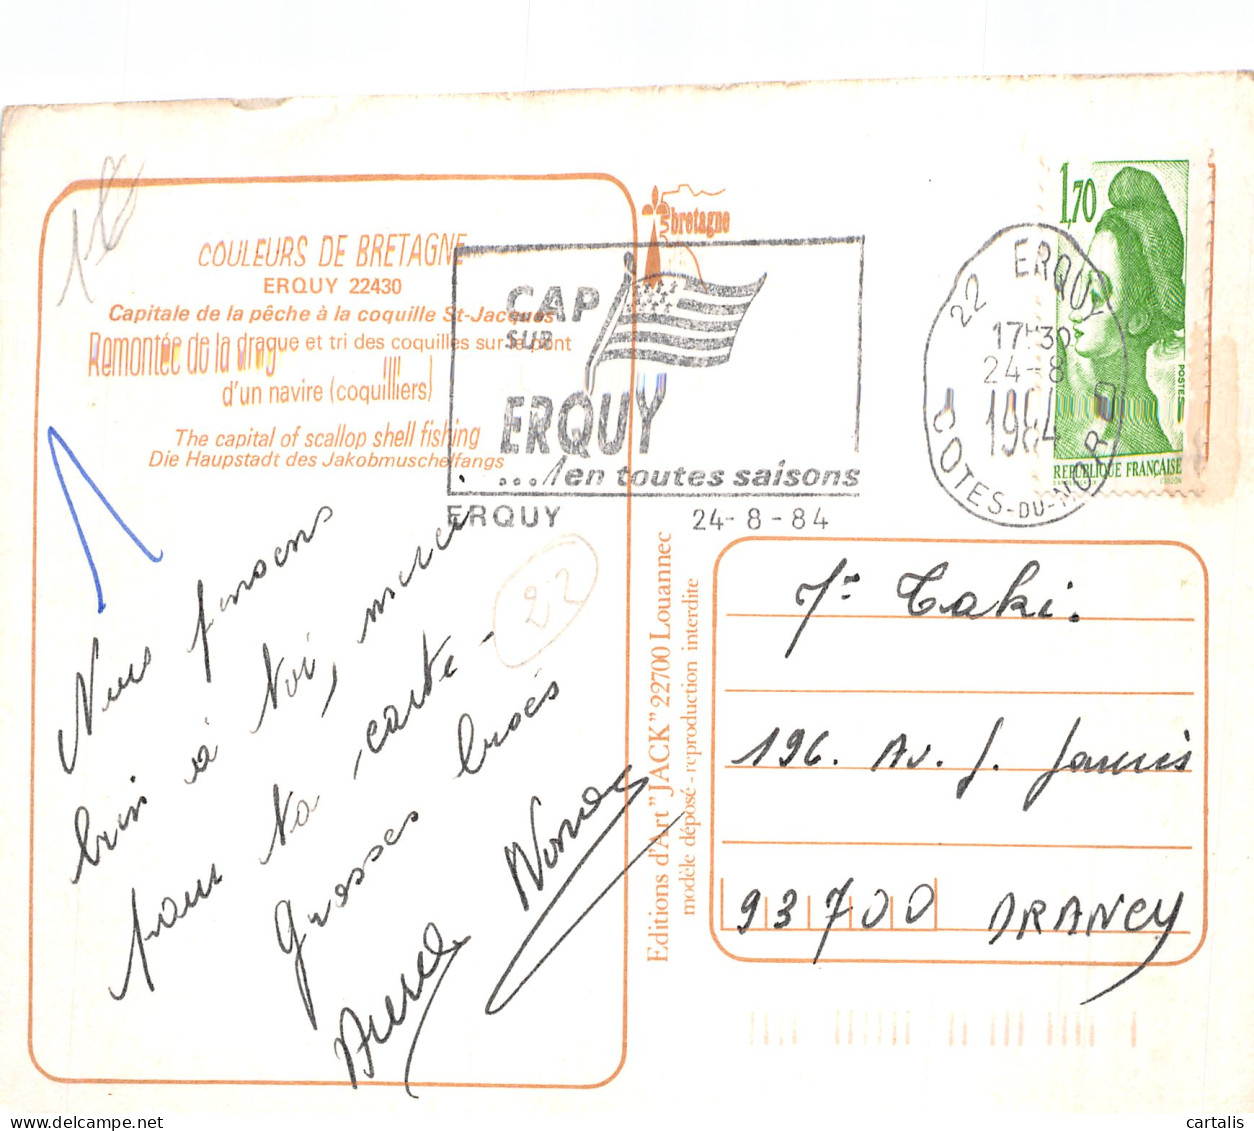 COULEURS DE BRETAGNE
ERQUY 22430
Capitale de la pêche à la coquille St-Jacques
Remontée de la drague et tri des coquilles sur le pont
d'un navire (coquilliers)
The capital of scallop shell fishing
Die Haupstadt des Jakobmuschelfangs
bretagne
CAP
SUR
ERQUY
...en toutes saisons
ERQUY 24-8-84
22 ERQUY
17H30
24-8
1984
COTES-DU-NORD
1,70
POSTES
REPUBLIQUE FRANÇAISE
Nous pensons
bien à toi, merci
pour ta carte -
Grosses bises
22
Editions d'Art "JACK" 22700 Louannec
modèle déposé - reproduction interdite
Taki.
196. Av. J. Jaurès
93700 DRANCY
cartalis